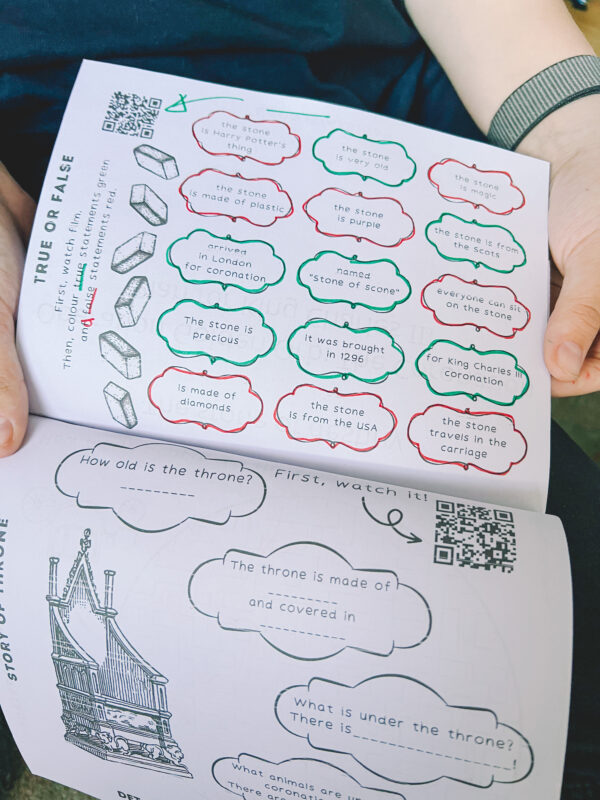 TRUE OR FALSE
First, watch film.
Then, colour true statements green
and false statements red.
the stone
is Harry Potter's
thing
the stone
is very old
the stone
is magic
the stone
is made of plastic
the stone
is purple
the stone is from
the Scots
arrived
in London
for coronation
named
"Stone of Scone"
everyone can sit
on the stone
The stone is
precious
It was brought
in 1296
for King Charles III
coronation
is made of
diamonds
the stone
is from the USA
the stone
travels in the
carriage
STORY OF THRONE
How old is the throne?
_________
First, watch it!
The throne is made of
_________
and covered in
_____________
What is under the throne?
There is__________________!
What animals are
coronation
There are